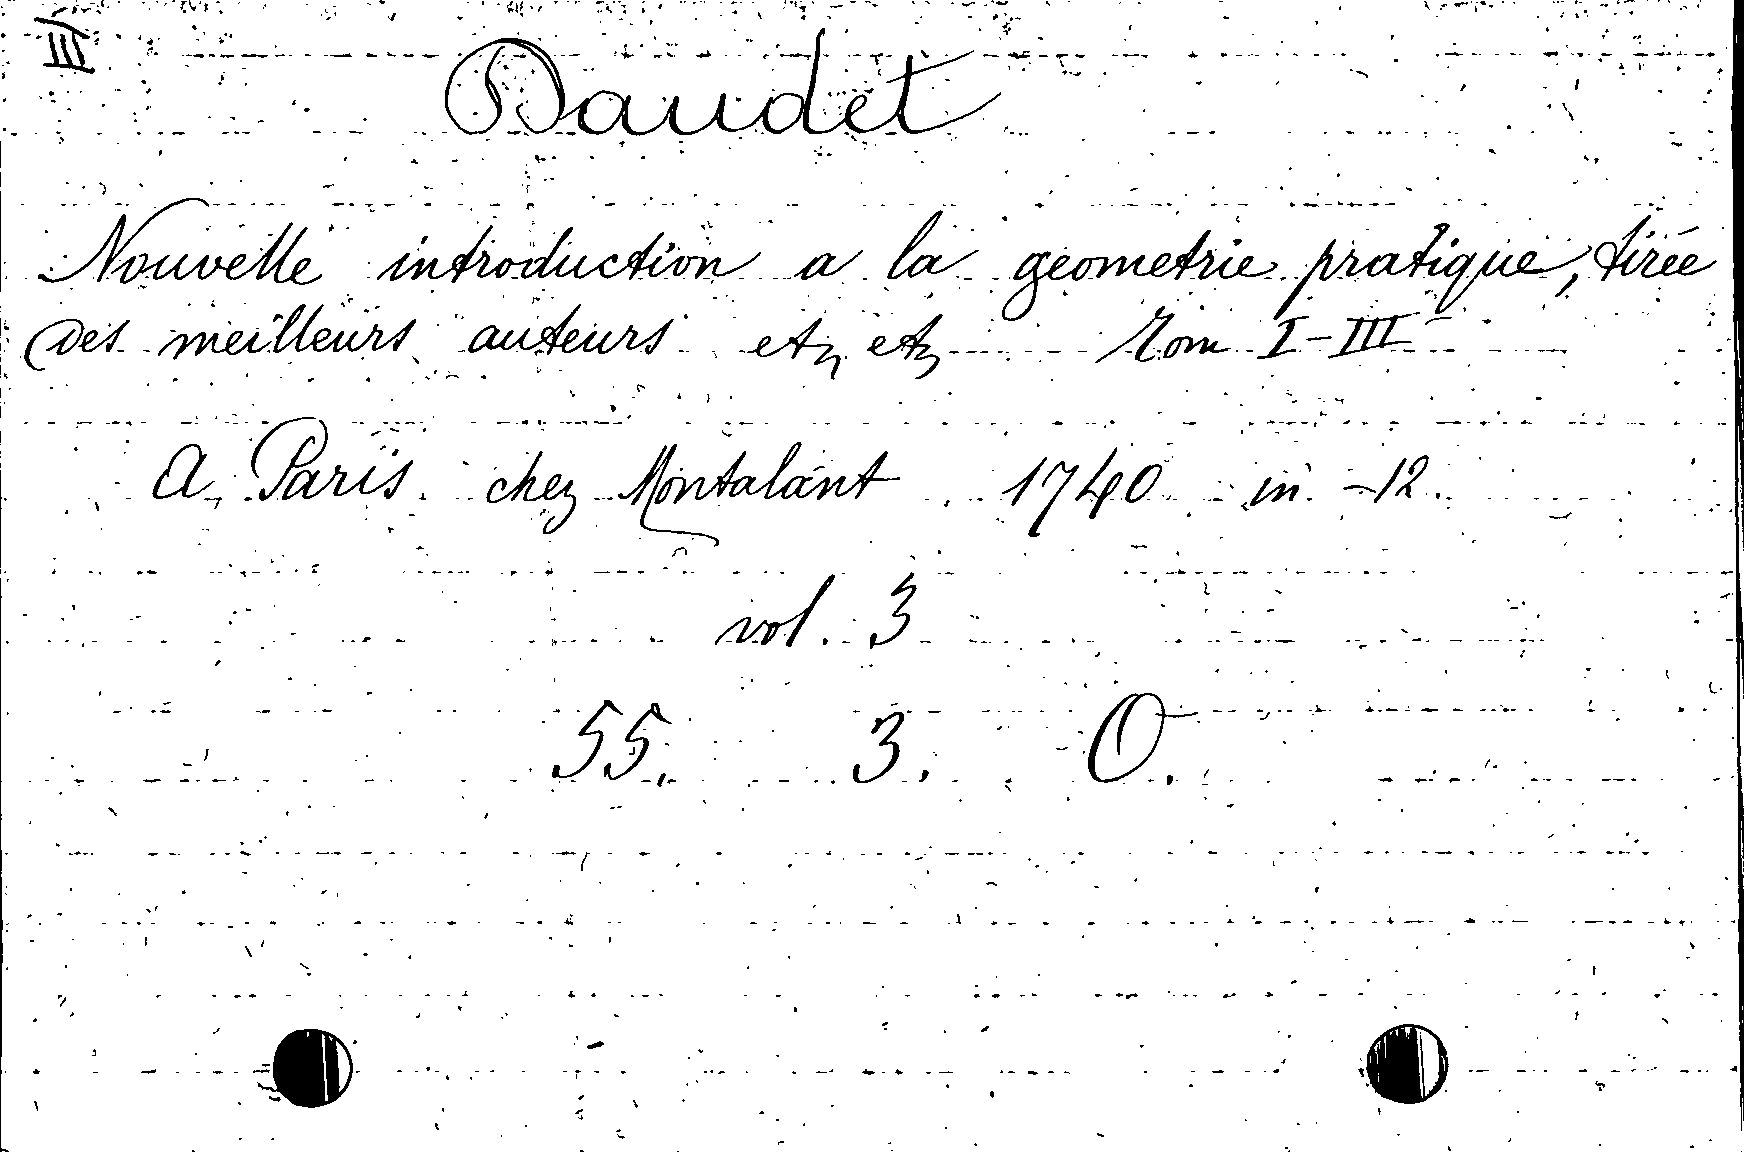 III
Daudet
Nouvelle introduction a la geometrie pratique, tirée
des meilleurs auteurs etz etz Tom I-III
A Paris chez Montalant 1740 in -12.
vol. 3
55. 3. O.